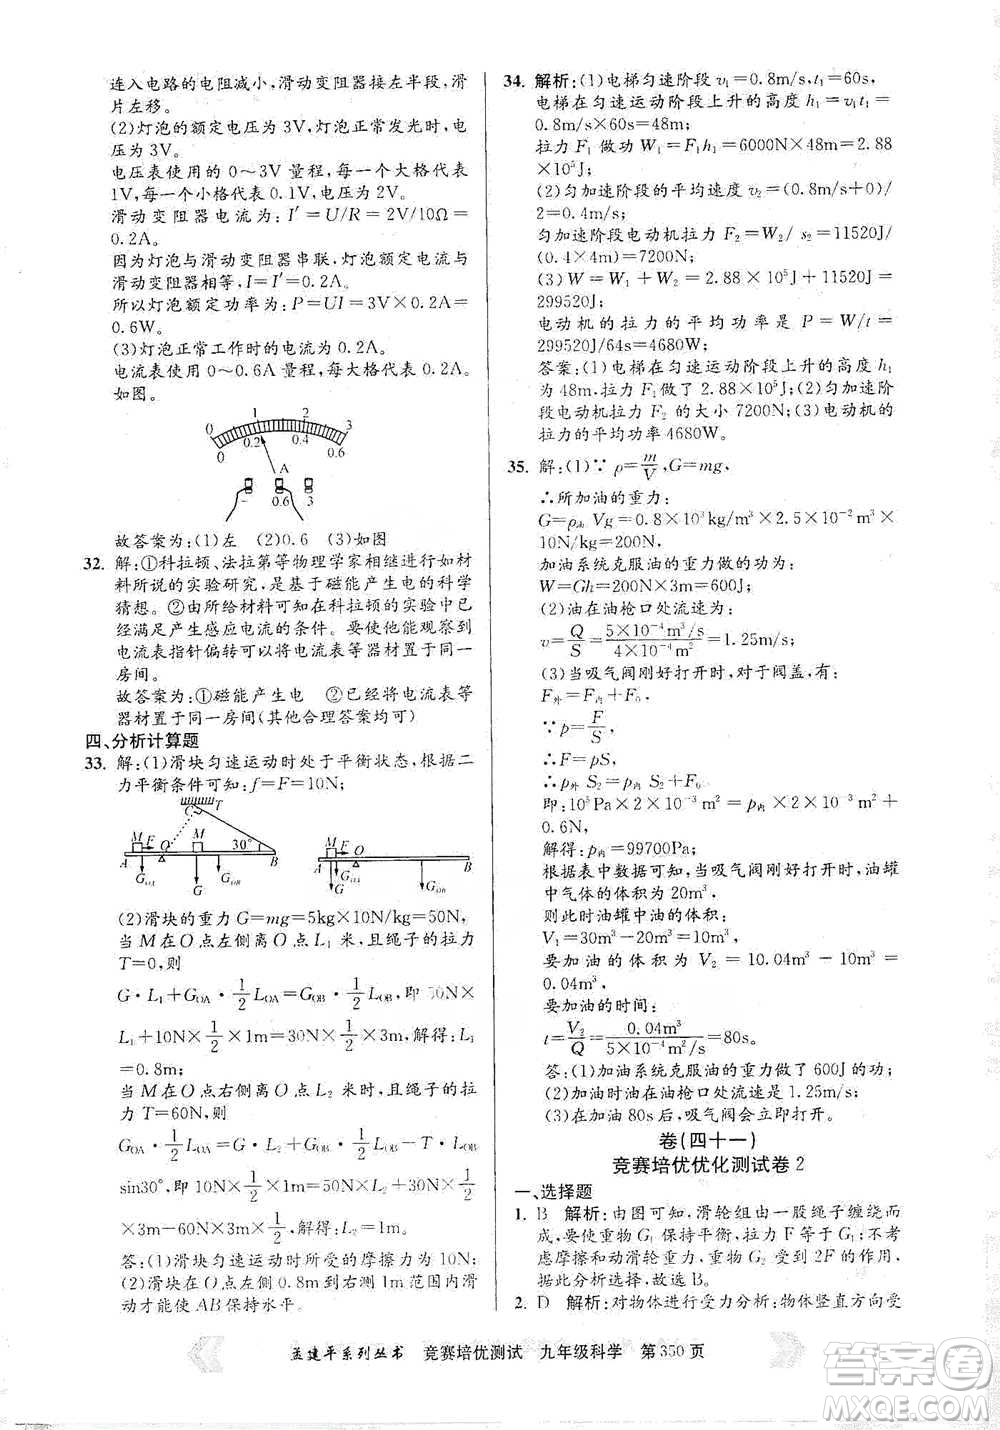 连入电路的电阻减小,滑动变阻器接左半段,滑
片左移。
(2)灯泡的额定电压为3V,灯泡正常发光时,电
压为3V。
电压表使用的0～3V量程,每一个大格代表
1V,每一个小格代表0.1V,电压为2V。
滑动变阻器电流为:I′=U/R=2V/10Ω=
0.2A。
因为灯泡与滑动变阻器串联,灯泡额定电流与
滑动变阻器相等,I=I′=0.2A。
所以灯泡额定功率为:P=UI=3V×0.2A=
0.6W。
(3)灯泡正常工作时的电流为0.2A。
电流表使用0～0.6A量程,每大格代表0.2A。
如图。
0 1 2 3
0 0.2 0.4 0.6
A
- 0.6 3
故答案为:(1)左 (2)0.6 (3)如图
32. 解:①科拉顿、法拉第等物理学家相继进行如材
料所说的实验研究,是基于磁能产生电的科学
猜想。②由所给材料可知在科拉顿的实验中已
经满足产生感应电流的条件。要使他能观察到
电流表指针偏转可以将电流表等器材置于同一
房间。
故答案为:①磁能产生电 ②已经将电流表等
器材置于同一房间(其他合理答案均可)
四、分析计算题
33. 解:(1)滑块匀速运动时处于平衡状态,根据二
力平衡条件可知:f=F=10N;
C T
M F O M 30° B
A G_OA G G_OB
M F O
A G G_OA G_OB B
(2)滑块的重力G=mg=5kg×10N/kg=50N,
当M在O点左侧离O点L₁米,且绳子的拉力
T=0,则
G·L₁+G_OA·1/2 L_OA=G_OB·1/2 L_OB,即50N×
L₁+10N×1/2×1m=30N×1/2×3m,解得:L₁
=0.8m;
当M在O点右侧离O点L₂米时,且绳子的拉
力T=60N,则
G_OA·1/2 L_OA=G·L₂+G_OB·1/2 L_OB-T·L_OB
sin30°,即10N×1/2×1m=50N×L₂+30N×1/2
×3m-60N×3m×1/2,解得:L₂=1m;
答:(1)滑块匀速运动时所受的摩擦力为10N;
(2)滑块在O点左侧0.8m到右测1m范围内滑
动才能使AB保持水平。
34. 解析:(1)电梯匀速阶段v₁=0.8m/s,t₁=60s,
电梯在匀速运动阶段上升的高度h₁=v₁t₁=
0.8m/s×60s=48m;
拉力F₁做功W₁=F₁h₁=6000N×48m=2.88
×10⁵J;
(2)匀加速阶段的平均速度v₂=(0.8m/s+0)/
2=0.4m/s;
匀加速阶段电动机拉力F₂=W₂/s₂=11520J/
(0.4×4m)=7200N;
(3)W=W₁+W₂=2.88×10⁵J+11520J=
299520J;
电动机的拉力的平均功率是P=W/t=
299520J/64s=4680W;
答案:(1)电梯在匀速运动阶段上升的高度h₁
为48m,拉力F₁做了2.88×10⁵J功;(2)匀加速阶
段电动机拉力F₂的大小7200N;(3)电动机的
拉力的平均功率4680W。
35. 解:(1)∵ρ=m/V,G=mg,
∴所加油的重力:
G=ρ油Vg=0.8×10³kg/m³×2.5×10⁻²m³×
10N/kg=200N,
加油系统克服油的重力做功:
W=Gh=200N×3m=600J;
(2)油在油枪口处流速为:
v=Q/S=5×10⁻⁴m³/s/4×10⁻⁴m²=1.25m/s;
(3)当吸气阀刚好打开时,对于阀盖,有:
F外=F内+F₀
∵p=F/S,
∴F=pS,
∴p外S₂=p内S₂+F₀
即:10⁵Pa×0.002m²=p内×0.002m²+
0.6N,
解得:p内=99700Pa;
根据表中数据可知,当吸气阀刚打开时,油罐
中气体的体积为20m³,
则此时油罐中油的体积:
V₁=30m³-20m³=10m³,
要加油的体积为V₂=10.04m³-10m³=
0.04m³,
要加油的时间:
t=V₂/Q=0.04m³/5×10⁻⁴m³/s=80s。
答:(1)加油系统克服油的重力做了600J的功;
(2)加油时油在油枪口处流速是1.25m/s;
(3)在加油80s后,吸气阀会立即打开。
卷(四十一)
竞赛培优优化测试卷2
一、选择题
1. B 解析:由图可知,滑轮组由一股绳子缠绕而
成,要使重物G₁保持平衡,拉力F等于G₁,不考
虑摩擦和动滑轮重力,重物G₂受到2F的作用,
据此分析选择,故选B。
2. D 解析:对物体进行受力分析:物体竖直方向受
孟建平系列丛书 竞赛培优测试 九年级科学 第350页
答案圈
MXQE.COM